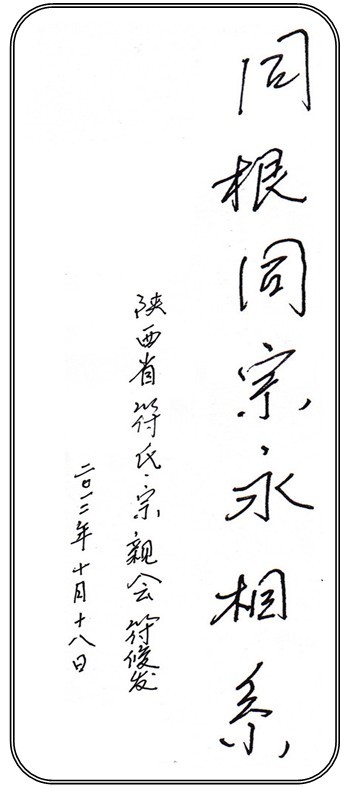 同根同宗永相系
陕西省符氏宗亲会符俊发
二〇一二年十月十八日